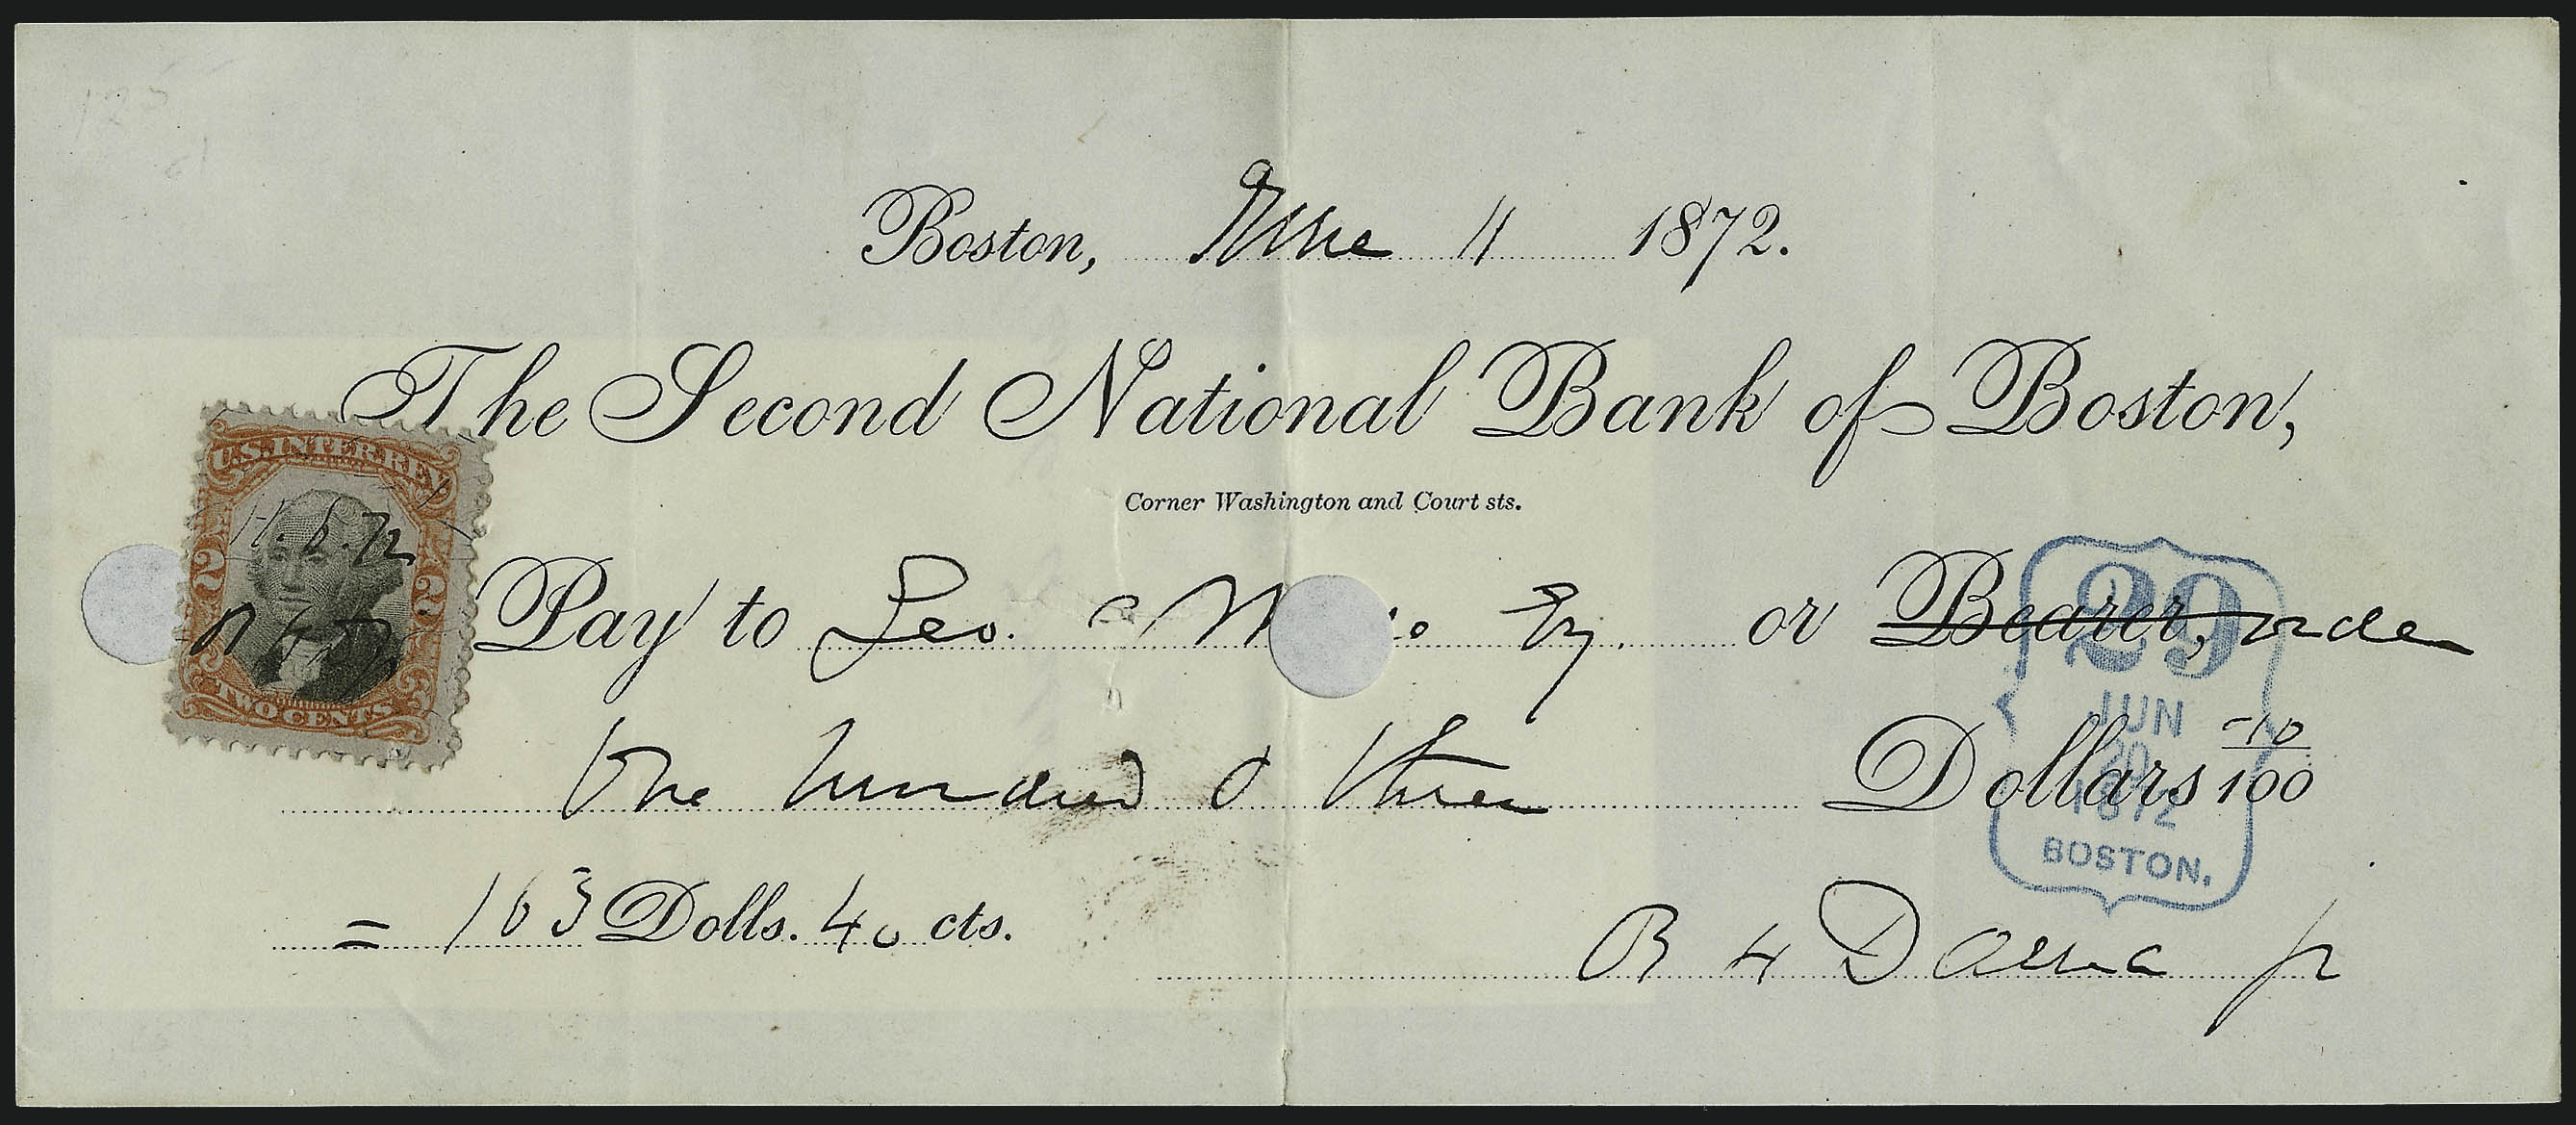 Boston, June 11 1872.
The Second National Bank of Boston,
Corner Washington and Court sts.
U.S. INTER. REV.
11. 6. 72
2 2
TWO CENTS
Pay to Geo. Esq. or Bearer, order
One hundred & three Dollars /100
= 103 Dolls. 40 cts.
29
JUN
20
1872
BOSTON.
R H Dana Jr